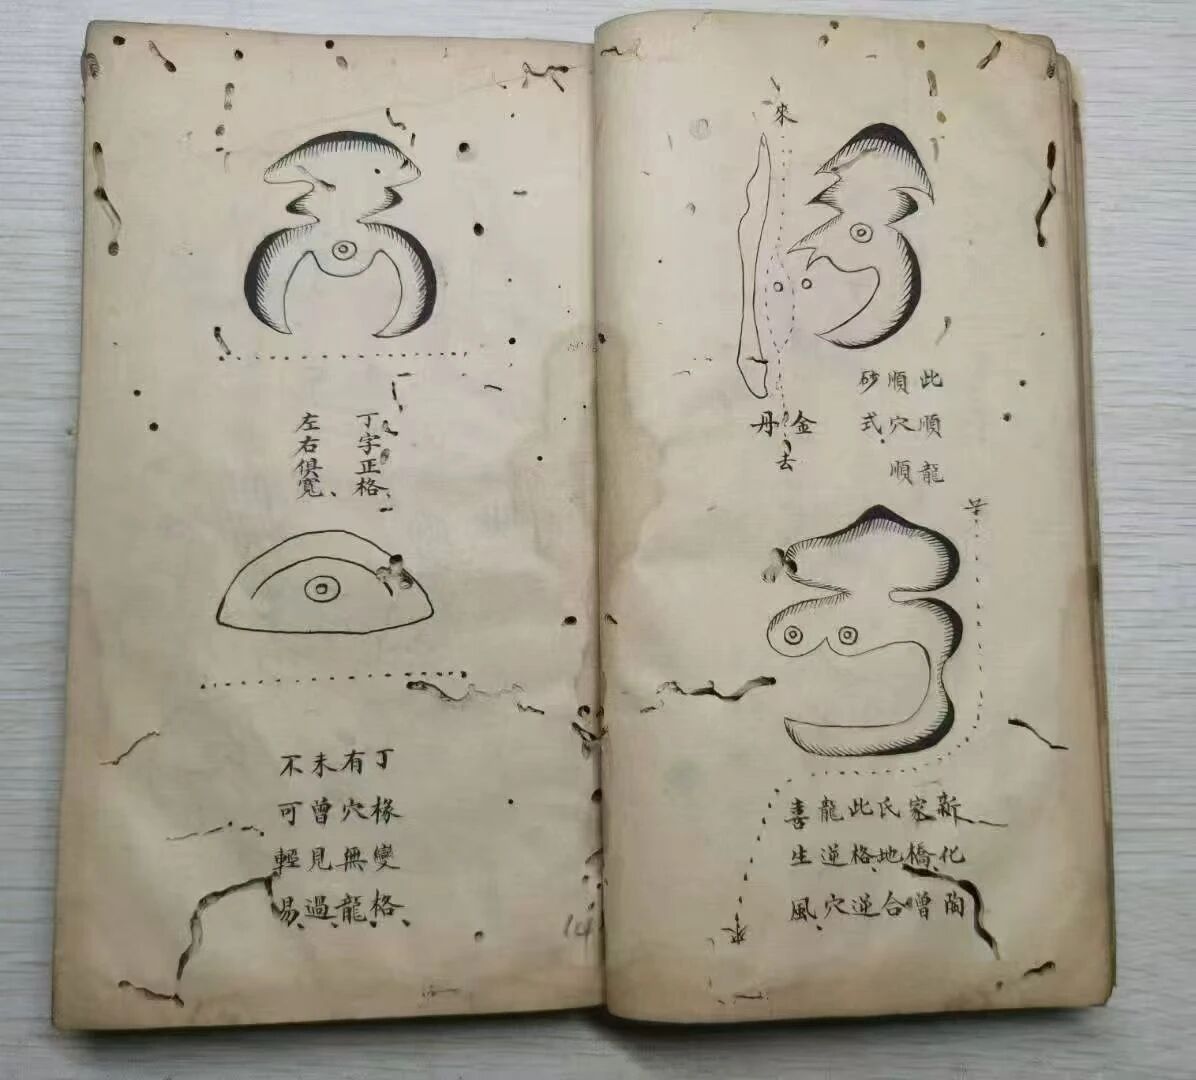 來
去
金丹
此順龍
順穴順
砂式
來
新化陶
家橋噌
氏地合
此格逆
龍逆穴
喜生風
丁字正格
左右俱寬
丁椽變格
有穴無龍
未曾見過
不可輕易
14